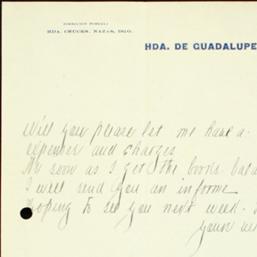 DIRECCION POSTAL:
HDA. CRUCES, NAZAS, DGO.
HDA. DE GUADALUPE
Will you please let me have a
expenses and charges
As soon as I get the books bala
I will send you an informe
Hoping to see you next week.
Yours